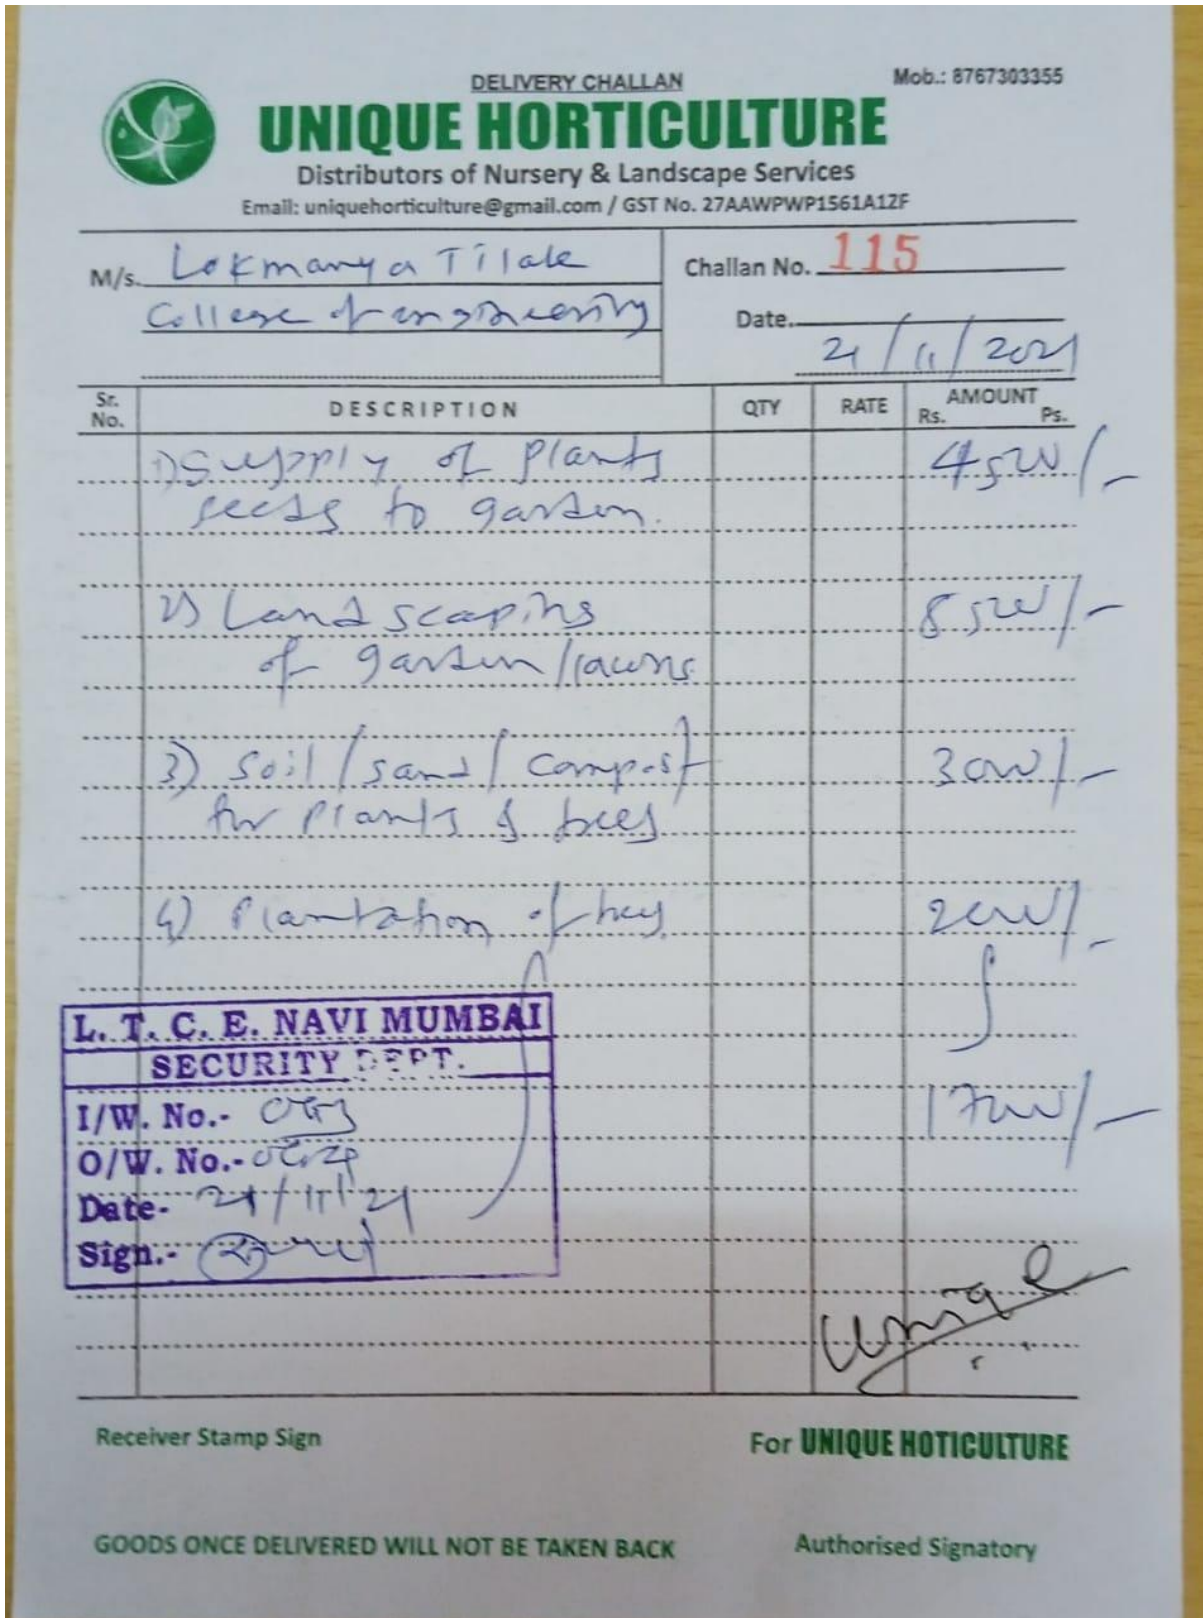 DELIVERY CHALLAN
Mob.: 8767303355
UNIQUE HORTICULTURE
Distributors of Nursery & Landscape Services
Email: uniquehorticulture@gmail.com / GST No. 27AAWPWP1561A1ZF
M/s. Lokmanya Tilak
College of engineering
Challan No. 115
Date.
21/11/2021
Sr. No. DESCRIPTION QTY RATE AMOUNT Rs. Ps.
1) Supply of Plants 4500/-
seeds to garden.
2) Landscaping 8500/-
of garden/lawns
3) Soil/sand/compost 3000/-
for Plants & trees
4) Plantation of trees 2000/-
L. T. C. E. NAVI MUMBAI
SECURITY DEPT.
I/W. No.-
O/W. No.-
Date- 21/11/21
Sign.-
/-
Unique
Receiver Stamp Sign
For UNIQUE HOTICULTURE
GOODS ONCE DELIVERED WILL NOT BE TAKEN BACK
Authorised Signatory